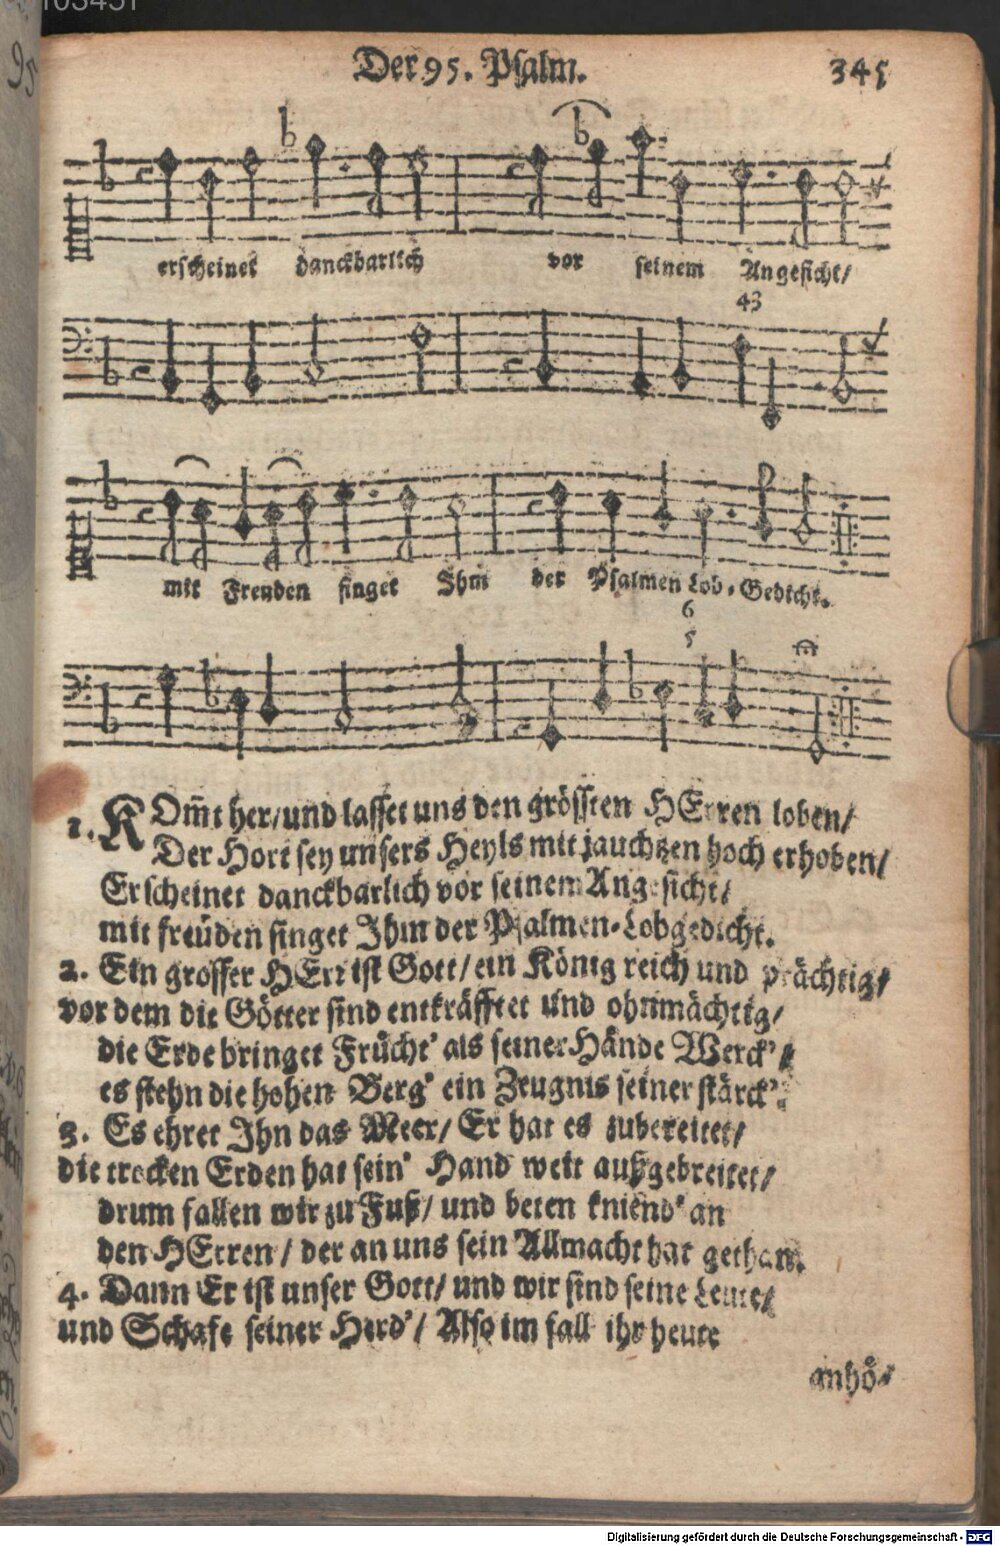 103451
95
Der 95. Psalm. 345
erscheinet danckbarlich vor seinem Angesicht/
43
mit Freuden singet Ihm der Psalmen Lob-Gedicht.
6
5
1. KOm̄t her/und lasset uns den grössten HErren loben/
Der Hort sey unsers Heyls mit jauchtzen hoch erhoben/
Erscheinet danckbarlich vor seinem Angesicht/
mit freüden singet Ihm der Psalmen-Lobgedicht.
2. Ein grosser HErr ist Gott/ein König reich und prächtig/
vor dem die Götter sind entkräfftet und ohnmächtig/
die Erde bringet Frücht' als seiner Hände Werck'/
es stehn die hohen Berg' ein Zeugnis seiner stärck'.
3. Es ehret Ihn das Meer/ Er hat es zubereitet/
die trocken Erden hat sein' Hand weit außgebreitet/
drum fallen wir zu Fuß/ und beten kniend' an
den HErren/ der an uns sein Allmacht hat gethan.
4. Dann Er ist unser Gott/ und wir sind seine Leute/
und Schafe seiner Herd'/ Also im fall ihr heute
anhö-
Digitalisierung gefördert durch die Deutsche Forschungsgemeinschaft - DFG